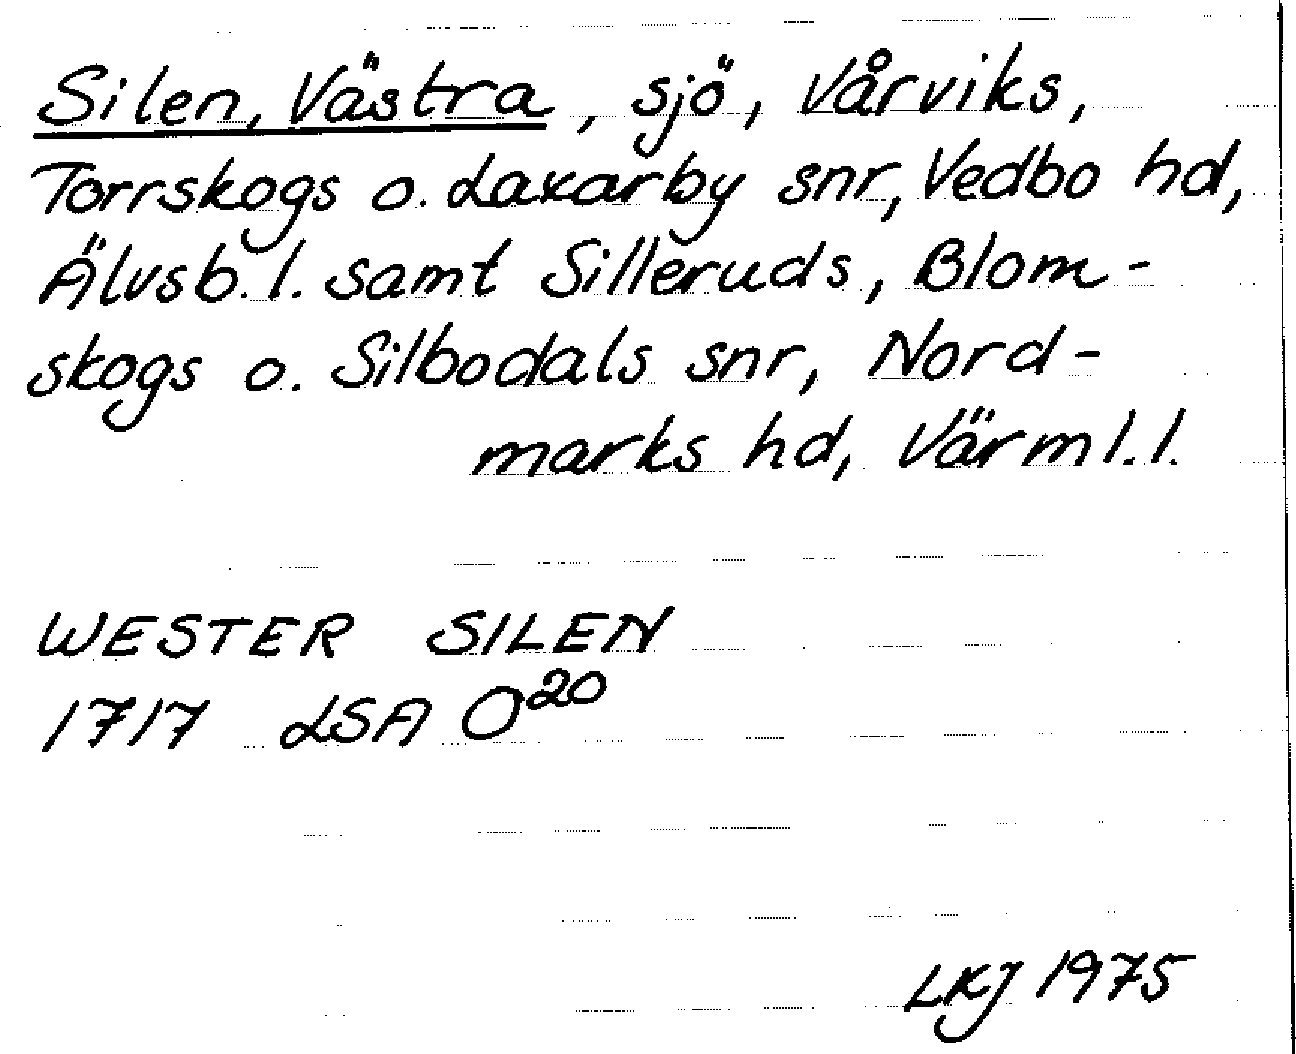 Silen, Västra, sjö, Vårviks,
Torrskogs o. Laxarby snr, Vedbo hd,
Älvsb. l. samt Silleruds, Blom-
skogs o. Silbodals snr, Nord-
marks hd, Värml. l.
WESTER SILEN
1717 LSA O²⁰
LKJ 1975